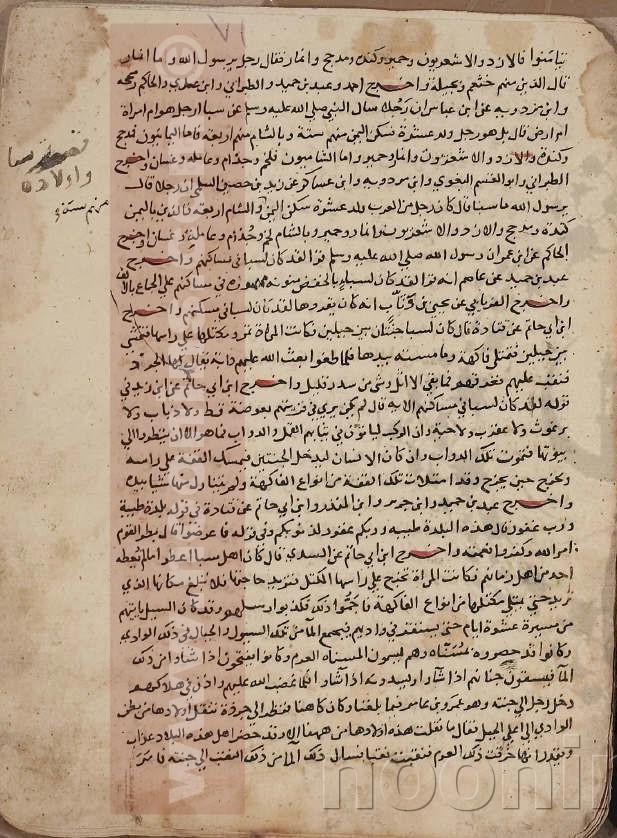 تيامنوا فالازد والاشعريون وحمير وكنده ومدحج وانمار فقال رجل يرسول الله وما انمار
قال الذين منهم خثعم وبجيلة واخرج احمد وعبد بن حميد والطبراني وابن عدي والحاكم وصححه
وابن مردويه عن ابن عباس ان رجلا سال النبي صلي الله عليه وسلم عن سبا ارجل هو ام امراة
ام ارض قال بل هو رجل ولد عشرة سكن اليمن منهم ستة وبالشام منهم اربعة فاما اليمانيون فمدحج
وكندة والازد والاشعريون وانمار وحمير واما الشاميون فلخم وجذام وعامله وغسان واخرج
الطبراني وابو القسم البغوي وابن مردويه وابن عساكر عن زيد بن حصين السلمي ان رجلا قال
يرسول الله ما سبا قال كان رجل من العرب ولد عشرة سكن اليمن والشام اربعة فالذين باليمن
كندة ومدحج والازد والاشعريون وانمار وحمير وبالشام لخم وجذام وعاملة وغسان واخرج
الحاكم عن ابن عمر ان رسول الله صلي الله عليه وسلم قرا لقد كان لسبا في مساكنهم واخرج
عبد بن حميد عن عاصم انه قرا لقد كان لسباء بالخفض منونة مهموزه في مساكنهم علي الجماع بالالف
واخرج الفريابي عن يحيي بن وثاب انه كان يقروها لقد كان لسبا في مسكنهم واخرج
ابن ابي حاتم عن قتادة قال كان لسبا جنتان بين جبلين فكانت المراة تمر ومكتلها علي راسها فتمشي
بين جبلين فتمتلي فاكهة وما مسته بيدها فلما طغوا بعث الله عليهم دابة يقال لها الجرذ
فنقب عليهم فغرقهم فما بقي الا اثل وشي من سدر قليل واخرج ابن ابي حاتم عن ابن زيد في
قوله لقد كان لسبا في مساكنهم الاية قال لم يكن يري في قريتهم بعوضة قط ولا ذباب ولا
برغوث ولا عقرب ولا حية وان الركب لياتون في ثيابهم القمل والدواب فما هو الا ان ينظروا الي
بيوتها فتموت تلك الدواب وان كان الانسان ليدخل الجنتين فيمسك القفة علي راسه
ويخرج حين يخرج وقد امتلات تلك القفة من انواع الفاكهة ولم يتناول منها شيا بيده
واخرج عبد بن حميد وابن جرير وابن المنذر وابن ابي حاتم عن قتادة في قوله بلدة طيبة
ورب غفور قال هذه البلدة طيبه وربكم غفور لذنوبكم وفي قوله فاعرضوا قال بطر القوم
امر الله وكفروا نعمته واخرج ابن ابي حاتم عن السدي قال كان اهل سبا اعطوا ما لم يعطه
احد من اهل زمانهم فكانت المراة تخرج علي راسها المكتل فتريد حاجتها فلا تبلغ مكانها الذي
تريد حتي يمتلي مكتلها من انواع الفاكهة فاجموا ذلك فكذبوا رسلهم وقد كان السيل ياتيهم
من مسيرة عشرة ايام حتي يستقر في واديهم فيجمع الما من تلك السيول والجبال في ذلك الوادي
وكانوا قد حصروه بمسناه وهم يسمون المسناه العرم وكانوا يفتحون اذا شاوا من ذلك
الما فيسقون جنانهم اذا شاوا ويسدونه اذا شاوا فلما غضب الله عليهم واذن في هلاكهم
دخل رجل الي جنته وهو عمرو بن عامر فيما بلغنا وكان كاهنا فنظر الي جرذة تنقل اولادها من بطن
الوادي الي اعلي الجبل فقال ما نقلت هذه اولادها من ههنا الا وقد حضر اهل هذه البلاد عذاب
ويقدر انها خرقت ذلك العرم فنقبت نقبا فسال ذلك الما من ذلك النقب الي جنته فامر
سبا
واولاده
منهم ستة